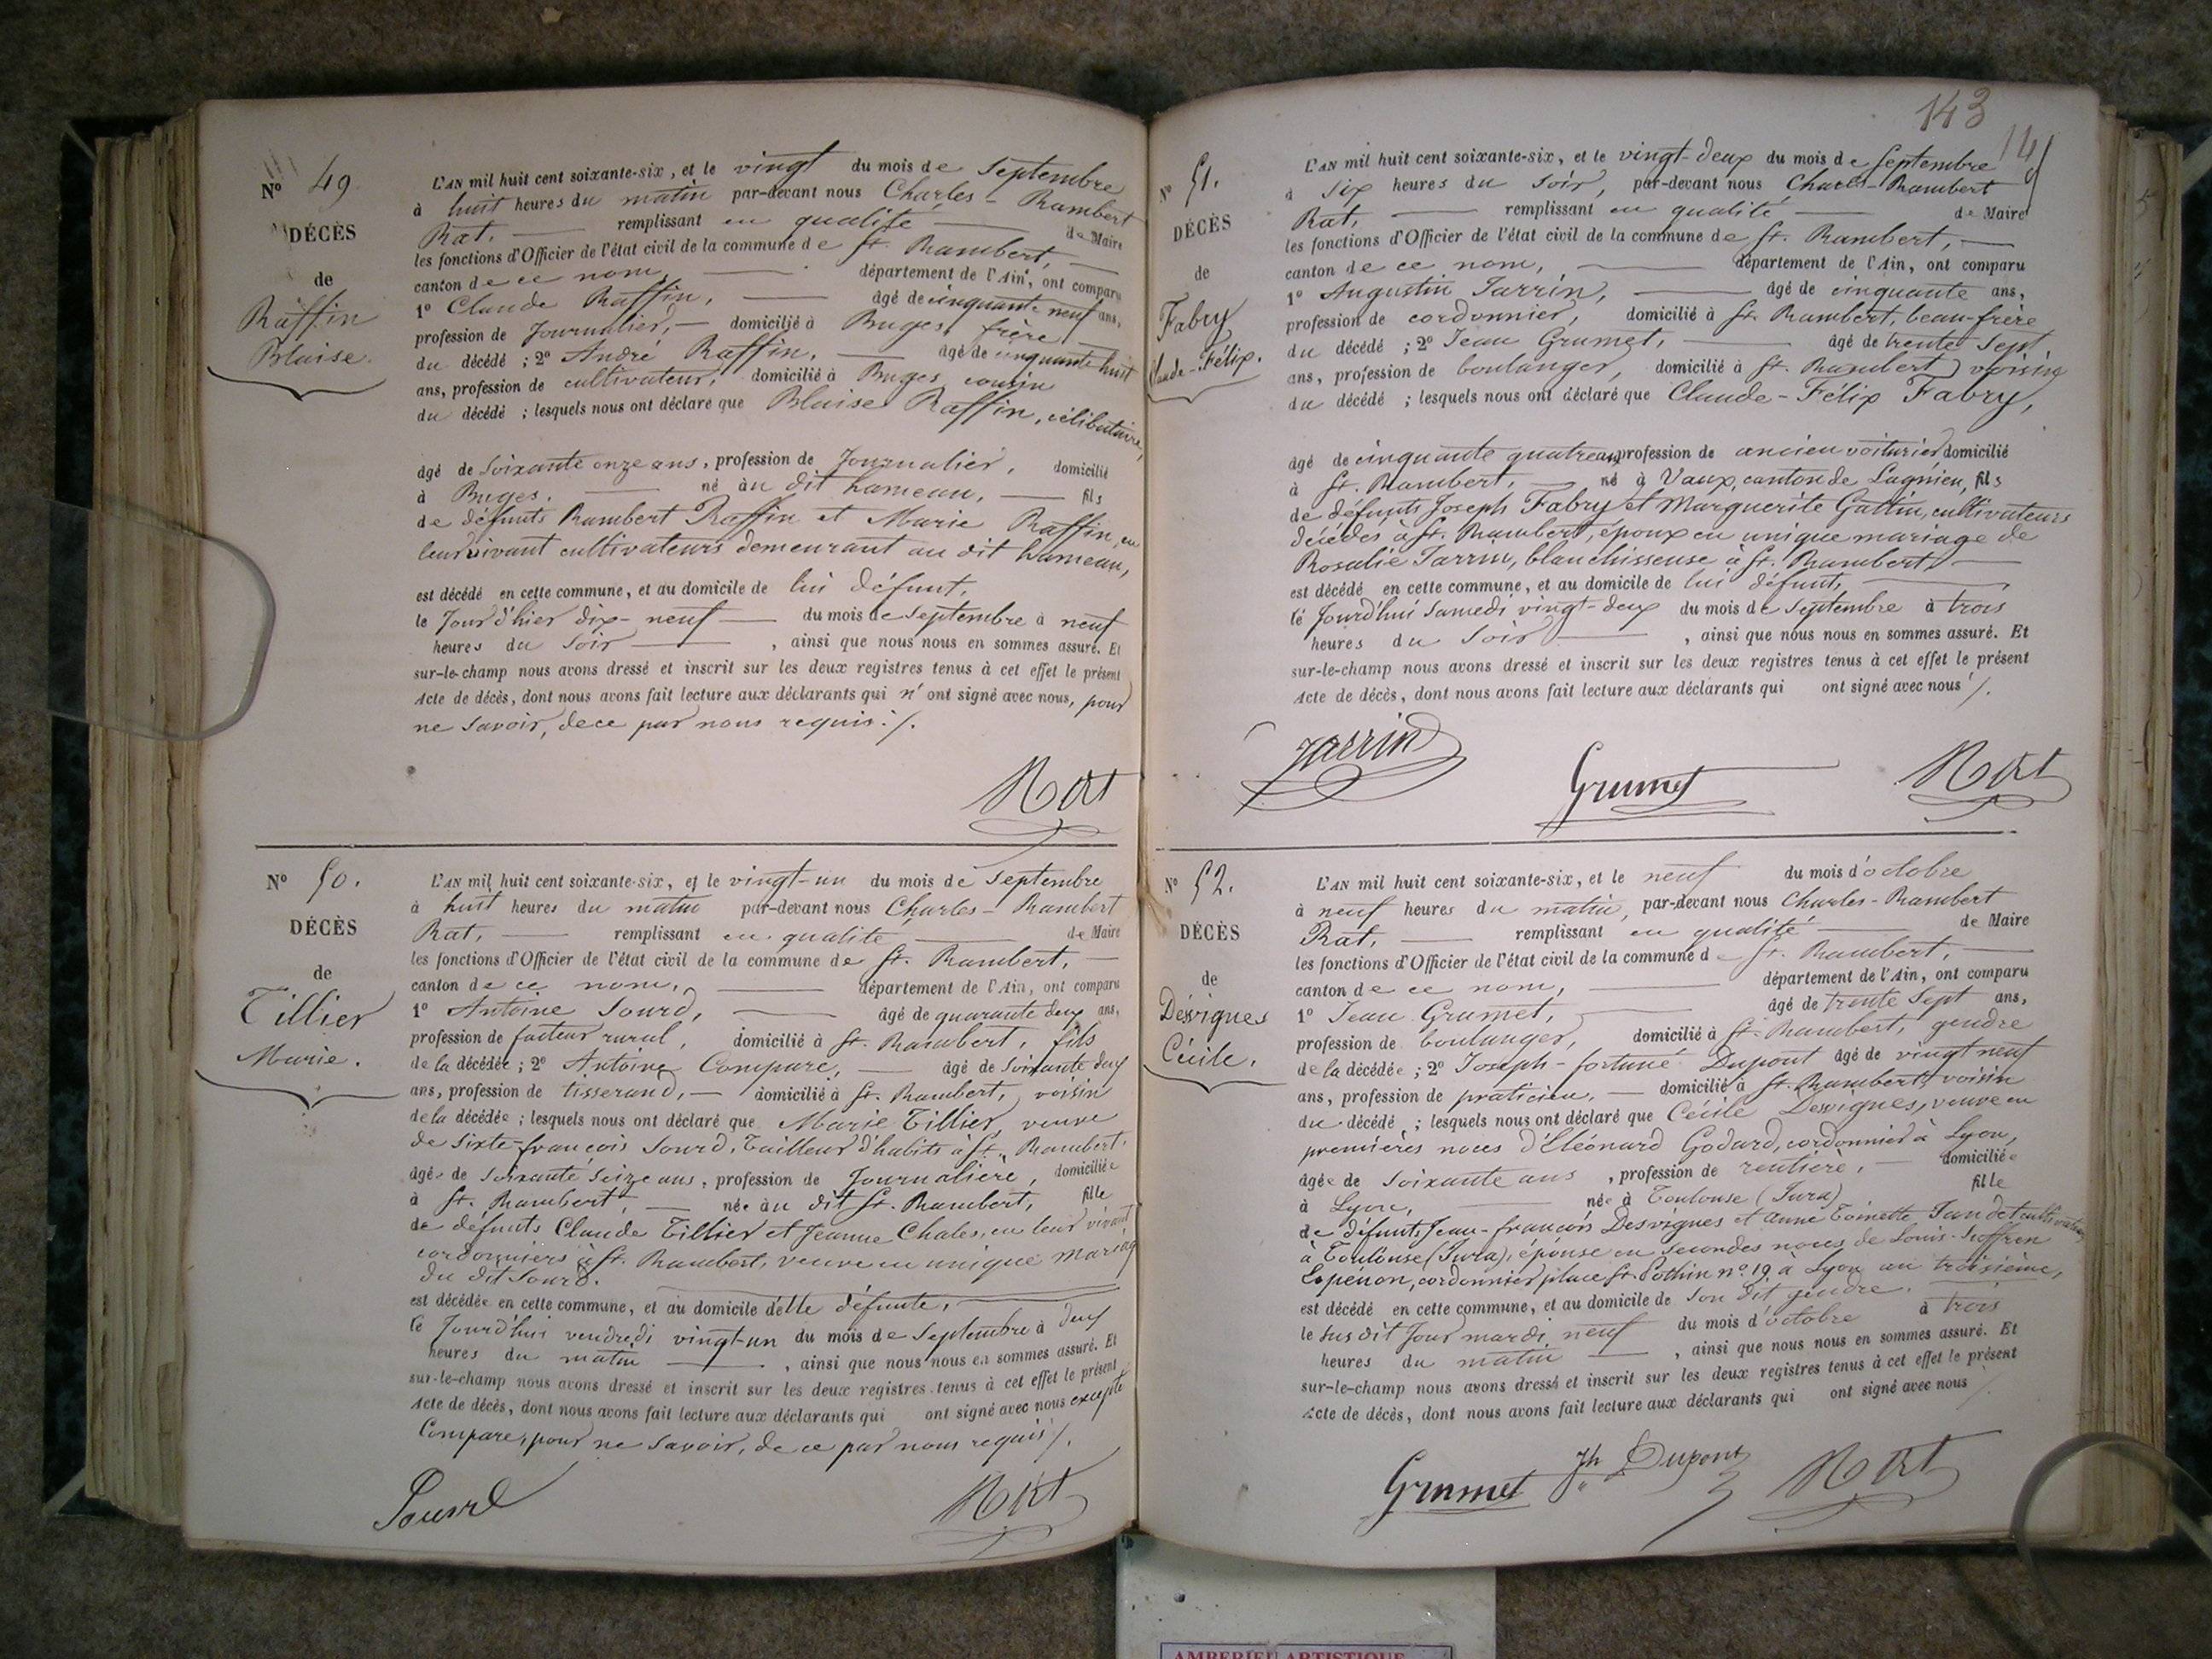 Nº 49
DÉCÈS
de
Raffin
Blaise.
L'AN mil huit cent soixante-six, et le vingt du mois de Septembre
à huit heures du matin par-devant nous Charles-Rambert
Rat, remplissant en qualité de Maire
les fonctions d'Officier de l'état civil de la commune de St. Rambert,
canton de ce nom, département de l'Ain, ont comparu
1º Claude Raffin, âgé de cinquante neuf ans,
profession de Journalier, domicilié à Buges, frère
du décédé ; 2º André Raffin, âgé de cinquante huit
ans, profession de cultivateur, domicilié à Buges, cousin
du décédé ; lesquels nous ont déclaré que Blaise Raffin, célibataire,
âgé de Soixante onze ans, profession de Journalier, domicilié
à Buges. né au dit hameau, fils
de défunts Rambert Raffin et Marie Raffin, en
leur vivant cultivateurs demeurant au dit hameau,
est décédé en cette commune, et au domicile de lui défunt,
le Jour d'hier dix-neuf du mois de Septembre à neuf
heures du Soir, ainsi que nous nous en sommes assuré. Et
sur-le-champ nous avons dressé et inscrit sur les deux registres tenus à cet effet le présent
Acte de décès, dont nous avons fait lecture aux déclarants qui n'ont signé avec nous, pour
ne Savoir, de ce par nous requis ./.
Rat
Nº 50.
DÉCÈS
de
Tillier
Marie.
L'AN mil huit cent soixante-six, et le vingt-un du mois de Septembre
à huit heures du matin par-devant nous Charles-Rambert
Rat, remplissant en qualité de Maire
les fonctions d'Officier de l'état civil de la commune de St. Rambert,
canton de ce nom, département de l'Ain, ont comparu
1º Antoine Sourd, âgé de quarante deux ans,
profession de facteur rural, domicilié à St. Rambert, fils
de la décédée ; 2º Antoine Compare, âgé de Soixante deux
ans, profession de tisserand, domicilié à St. Rambert, voisin
de la décédée ; lesquels nous ont déclaré que Marie Tillier, veuve
de Sixte-françois Sourd, Tailleur d'habits à St. Rambert,
âgée de Soixante Seize ans, profession de Journalière, domiciliée
à St. Rambert, née au dit St. Rambert, fille
de défunts Claude Tillier et Jeanne Chales, en leur vivant
cordonniers à St. Rambert, veuve en unique mariage
du dit Sourd.
est décédée en cette commune, et au domicile d'elle défunte,
le Jourd'hui vendredi vingt-un du mois de Septembre à deux
heures du matin, ainsi que nous nous en sommes assuré. Et
sur-le-champ nous avons dressé et inscrit sur les deux registres tenus à cet effet le présent
Acte de décès, dont nous avons fait lecture aux déclarants qui ont signé avec nous excepté
Compare, pour ne Savoir, de ce par nous requis ./.
Sourd
Rat
143
Nº 51.
DÉCÈS
de
Fabry
Claude-Félix.
L'AN mil huit cent soixante-six, et le vingt-deux du mois de Septembre
à Six heures du Soir, par-devant nous Charles-Rambert
Rat, remplissant en qualité de Maire
les fonctions d'Officier de l'état civil de la commune de St. Rambert,
canton de ce nom, département de l'Ain, ont comparu
1º Augustin Jarrin, âgé de cinquante ans,
profession de cordonnier, domicilié à St. Rambert, beau-frère
du décédé ; 2º Jean Grumet, âgé de trente Sept
ans, profession de boulanger, domicilié à St. Rambert, voisin
du décédé ; lesquels nous ont déclaré que Claude-Félix Fabry,
âgé de cinquante quatre ans, profession de ancien voiturier domicilié
à St. Rambert, né à Vaux, canton de Lagnieu, fils
de défunts Joseph Fabry et Marguerite Gattin, cultivateurs
décédés à St. Rambert, époux en unique mariage de
Rosalie Jarrin, blanchisseuse à St. Rambert,
est décédé en cette commune, et au domicile de lui défunt,
le Jourd'hui Samedi vingt-deux du mois de Septembre à trois
heures du Soir, ainsi que nous nous en sommes assuré. Et
sur-le-champ nous avons dressé et inscrit sur les deux registres tenus à cet effet le présent
Acte de décès, dont nous avons fait lecture aux déclarants qui ont signé avec nous ./.
Jarrin
Grumet
Rat
Nº 52.
DÉCÈS
de
Desvignes
Cécile.
L'AN mil huit cent soixante-six, et le neuf du mois d'octobre
à neuf heures du matin, par-devant nous Charles-Rambert
Rat, remplissant en qualité de Maire
les fonctions d'Officier de l'état civil de la commune de St. Rambert,
canton de ce nom, département de l'Ain, ont comparu
1º Jean Grumet, âgé de trente Sept ans,
profession de boulanger, domicilié à St. Rambert, gendre
de la décédée ; 2º Joseph-fortuné Dupont âgé de vingt neuf
ans, profession de praticien, domicilié à St. Rambert, voisin
du décédé ; lesquels nous ont déclaré que Cécile Desvignes, veuve en
premières noces d'Eléonard Godard, cordonnier à Lyon,
âgée de Soixante ans, profession de rentière, domiciliée
à Lyon, née à Toulouse (Jura) fille
de défunts Jean-françois Desvignes et Anne Toinette Jandet cultivateurs
à Toulouse (Jura), épouse en Secondes noces de Louis-
cordonnier place St. Pothin nº 19, à Lyon au troisième,
est décédé en cette commune, et au domicile de Son dit gendre,
le sus dit Jour mardi neuf du mois d'octobre à trois
heures du matin, ainsi que nous nous en sommes assuré. Et
sur-le-champ nous avons dressé et inscrit sur les deux registres tenus à cet effet le présent
Acte de décès, dont nous avons fait lecture aux déclarants qui ont signé avec nous ./.
Grumet
Jh Dupont
Rat
AMBERIEU ARTISTIQUE